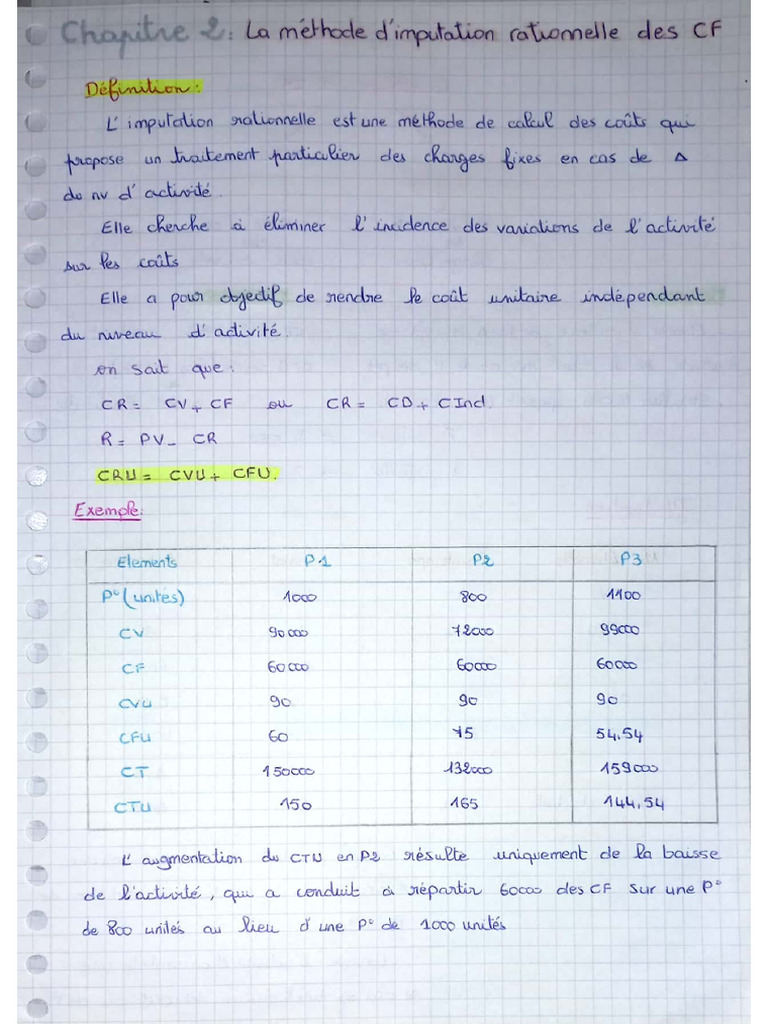 Chapitre 2: La méthode d'imputation rationnelle des CF
Définition:
L'imputation rationnelle est une méthode de calcul des coûts qui
propose un traitement particulier des charges fixes en cas de Δ
du nv d'activité.
Elle cherche à éliminer l'incidence des variations de l'activité
sur les coûts
Elle a pour objectif de rendre le coût unitaire indépendant
du niveau d'activité.
on sait que:
CR = CV + CF ou CR = CD + CInd.
R = PV - CR
CRU = CVU + CFU.
Exemple:
Elements P1 P2 P3
P° (unités) 1000 800 1100
CV 90000 72000 99000
CF 60000 60000 60000
CVU 90 90 90
CFU 60 75 54,54
CT 150000 132000 159000
CTU 150 165 144,54
L'augmentation du CTU en P2 résulte uniquement de la baisse
de l'activité, qui a conduit à répartir 60000 des CF sur une P°
de 800 unités au lieu d'une P° de 1000 unités